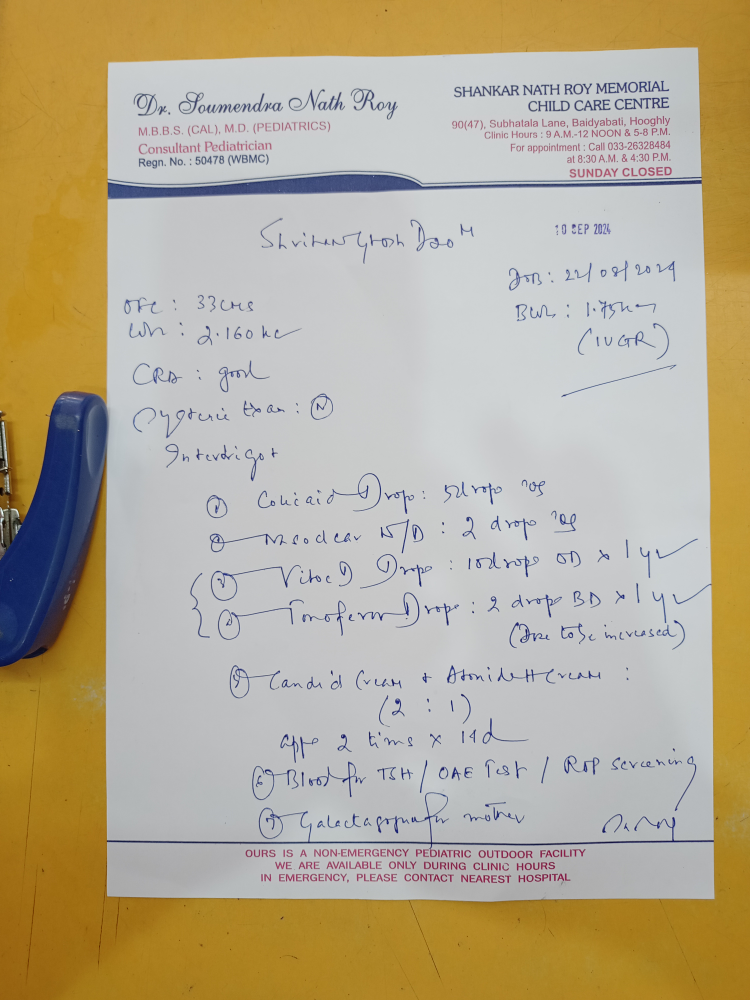 Dr. Soumendra Nath Roy
M.B.B.S. (CAL), M.D. (PEDIATRICS)
Consultant Pediatrician
Regn. No. : 50478 (WBMC)
SHANKAR NATH ROY MEMORIAL
CHILD CARE CENTRE
90(47), Subhatala Lane, Baidyabati, Hooghly
Clinic Hours : 9 A.M.-12 NOON & 5-8 P.M.
For appointment : Call 033-26328484
at 8:30 A.M. & 4:30 P.M.
SUNDAY CLOSED
10 SEP 2024
DOB : 22/08/2024
OFC : 33 cms
: 2.160 kg
: 1.75 kg
(IUGR)
: good
Exam : N
Intertrigo +
1 Colicaid Drops : 5 drops SOS
2 Nasoclear N/D : 2 drops SOS
3 D Drops : 10 drops OD x 1 yr
4 Tonoferon Drops : 2 drops BD x 1 yr
(Dose to be increased)
5 Candid Cream + Cream :
(2 : 1)
2 times x 14d
6 Blood for TSH / OAE Test / ROP screening
7 Galactagogue for mother
OURS IS A NON-EMERGENCY PEDIATRIC OUTDOOR FACILITY
WE ARE AVAILABLE ONLY DURING CLINIC HOURS
IN EMERGENCY, PLEASE CONTACT NEAREST HOSPITAL